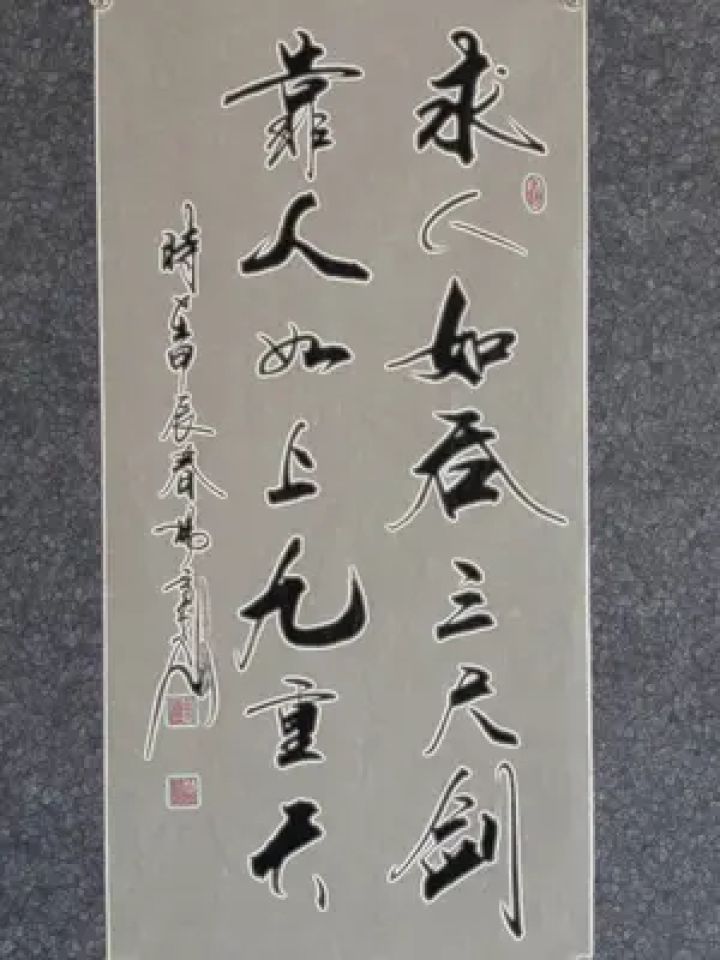 求人如吞三尺剑
靠人如上九重天
時在甲辰春